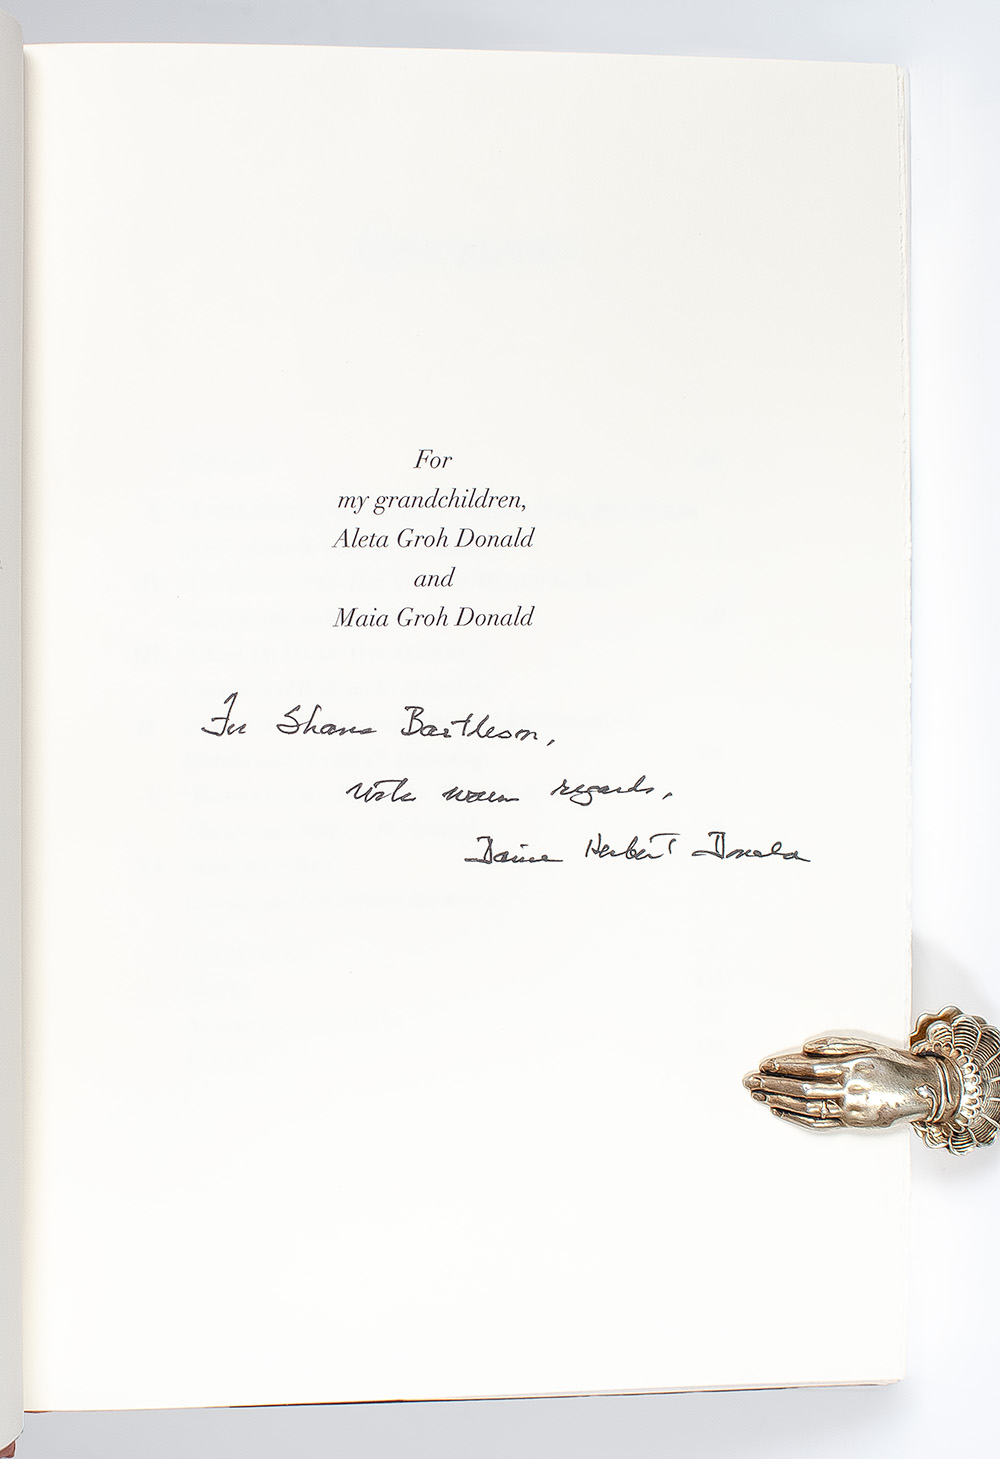 For
my grandchildren,
Aleta Groh Donald
and
Maia Groh Donald
For Shane Bartleson,
with warm regards,
David Herbert Donald